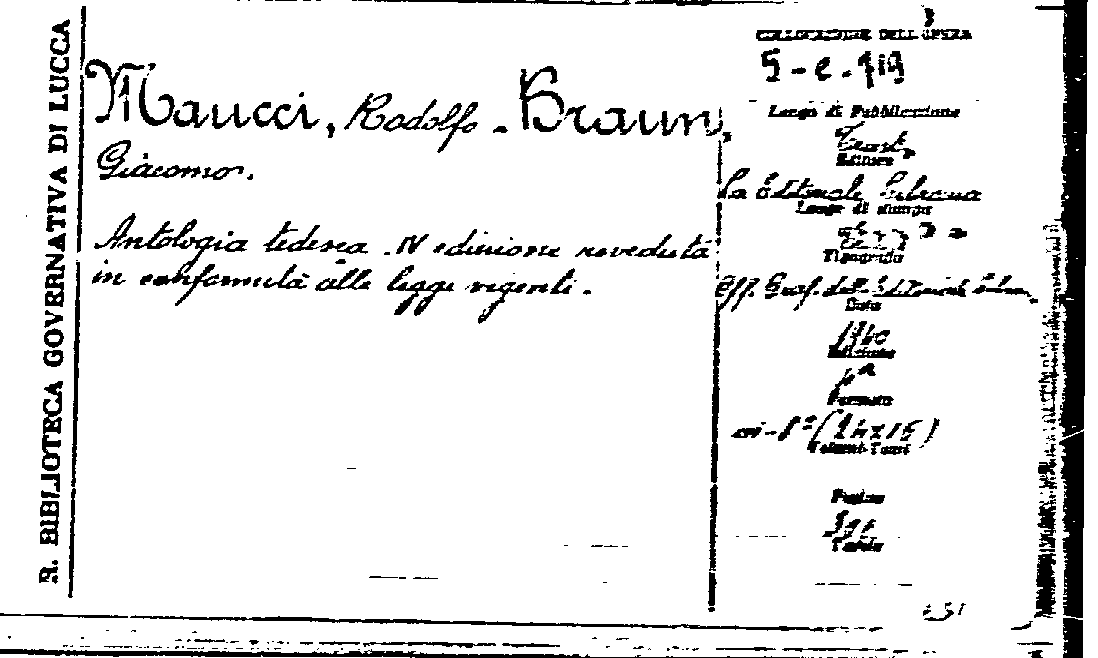 R. BIBLIOTECA GOVERNATIVA DI LUCCA
Maucci, Rodolfo - Braun,
Giacomo.
Antologia tedesca. IV edizione reveduta
in conformità alle legge vigenti.
COLLOCAZIONE DELL'OPERA
5-e-119
Luogo di Pubblicazione
Editore
La Editoriale Libraria
Luogo di stampa
Tipografia
Eff. Graf. della Editoriale
Data
1940
Edizione
Formato
in-8° (24x15)
Volumi-Tomi
Pagine
Tavole